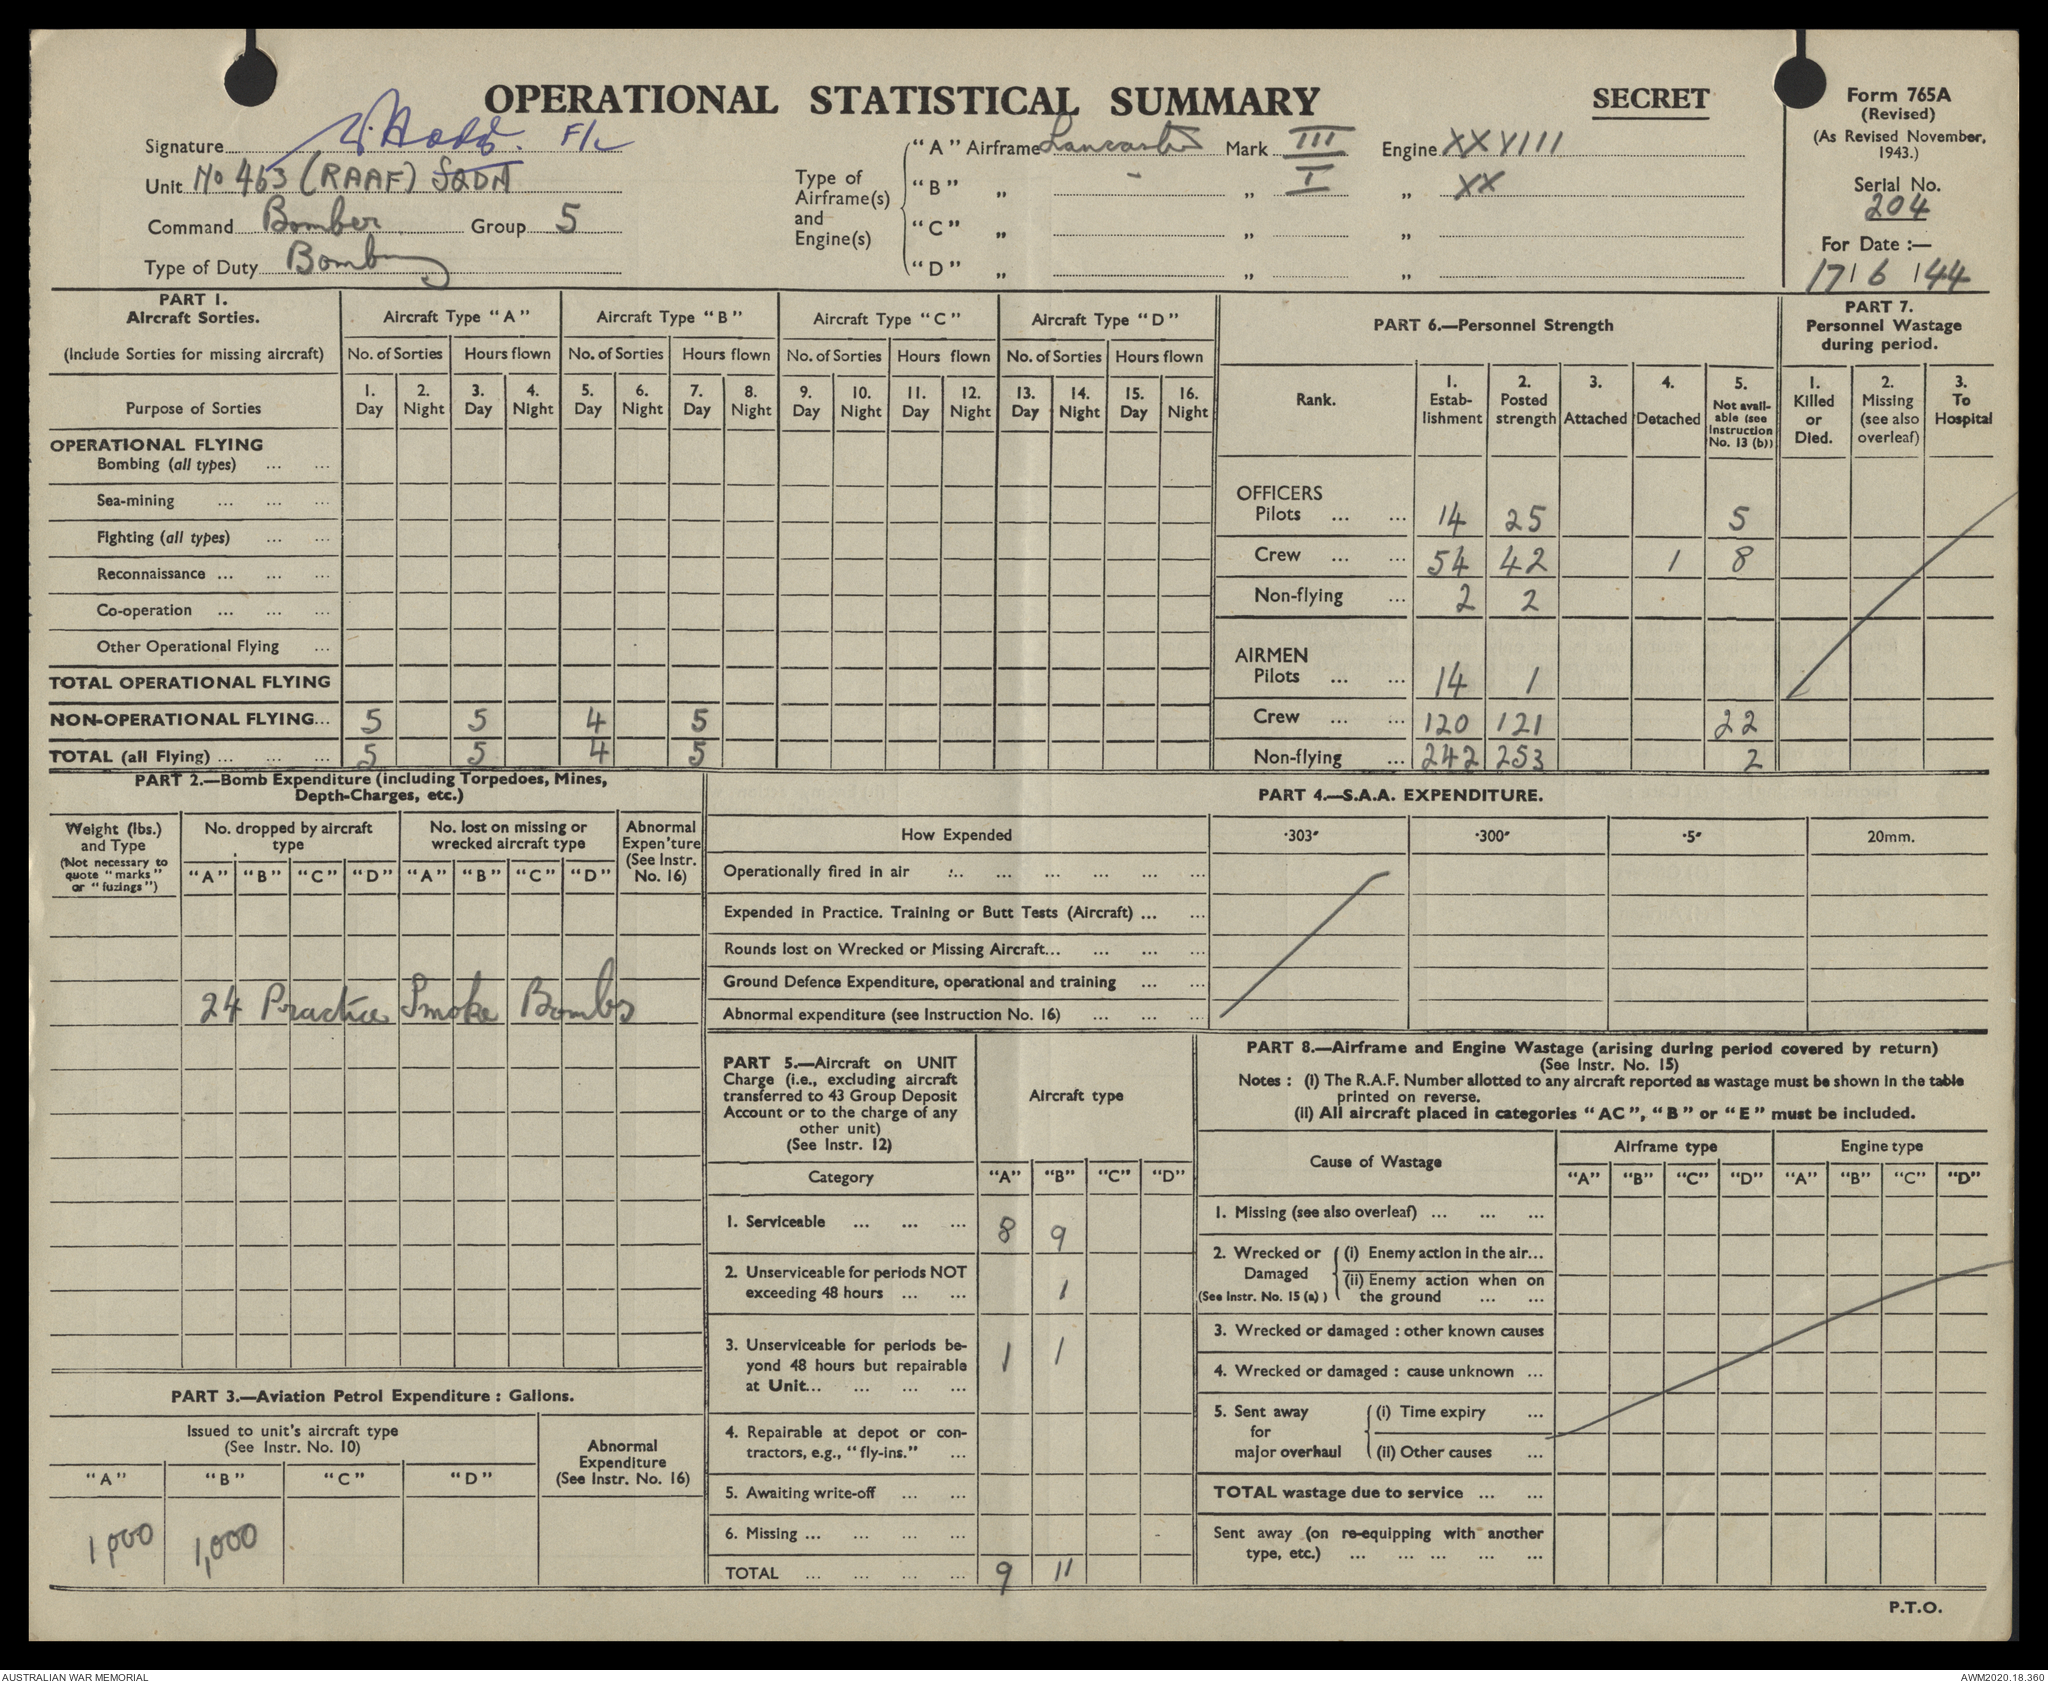 OPERATIONAL STATISTICAL SUMMARY
SECRET
Form 765A
(Revised)
(As Revised November,
1943.)
Serial No.
204
For Date :—
17/ 6 /44
Signature F/L
Unit No 463 (RAAF) SQDN
Command Bomber Group 5
Type of Duty Bombing
Type of
Airframe(s)
and
Engine(s)
"A" Airframe Lancaster Mark III Engine XXVIII
"B" „ - „ I „ XX
"C" „ „ „
"D" „ „ „
PART 1.
Aircraft Sorties.
(Include Sorties for missing aircraft)
Purpose of Sorties
Aircraft Type "A" Aircraft Type "B" Aircraft Type "C" Aircraft Type "D"
No. of Sorties Hours flown No. of Sorties Hours flown No. of Sorties Hours flown No. of Sorties Hours flown
1. 2. 3. 4. 5. 6. 7. 8. 9. 10. 11. 12. 13. 14. 15. 16.
Day Night Day Night Day Night Day Night Day Night Day Night Day Night Day Night
OPERATIONAL FLYING
Bombing (all types) ... ...
Sea-mining ... ... ...
Fighting (all types) ... ...
Reconnaissance ... ... ...
Co-operation ... ... ...
Other Operational Flying ...
TOTAL OPERATIONAL FLYING
NON-OPERATIONAL FLYING... 5 5 4 5
TOTAL (all Flying) ... ... ... 5 5 4 5
PART 6.—Personnel Strength
Rank.
1. Estab-lishment
2. Posted strength
3. Attached
4. Detached
5. Not avail-able (see Instruction No. 13 (b))
OFFICERS
Pilots ... ... 14 25 5
Crew ... ... 54 42 1 8
Non-flying ... 2 2
AIRMEN
Pilots ... ... 14 1
Crew ... ... 120 121 22
Non-flying ... 242 253 2
PART 7.
Personnel Wastage
during period.
1. Killed or Died.
2. Missing (see also overleaf)
3. To Hospital
PART 2.—Bomb Expenditure (including Torpedoes, Mines,
Depth-Charges, etc.)
Weight (lbs.)
and Type
(Not necessary to
quote "marks"
or "fuzings")
No. dropped by aircraft
type
No. lost on missing or
wrecked aircraft type
Abnormal
Expen'ture
(See Instr.
No. 16)
"A" "B" "C" "D" "A" "B" "C" "D"
24 Practice Smoke Bombs
PART 4.—S.A.A. EXPENDITURE.
How Expended ·303" ·300" ·5" 20mm.
Operationally fired in air ... ... ... ... ... ...
Expended in Practice. Training or Butt Tests (Aircraft) ... ...
Rounds lost on Wrecked or Missing Aircraft... ... ... ...
Ground Defence Expenditure, operational and training ... ...
Abnormal expenditure (see Instruction No. 16) ... ... ...
PART 3.—Aviation Petrol Expenditure : Gallons.
Issued to unit's aircraft type
(See Instr. No. 10)
Abnormal
Expenditure
(See Instr. No. 16)
"A" "B" "C" "D"
1,000 1,000
PART 5.—Aircraft on UNIT
Charge (i.e., excluding aircraft
transferred to 43 Group Deposit
Account or to the charge of any
other unit)
(See Instr. 12)
Aircraft type
Category "A" "B" "C" "D"
1. Serviceable ... ... ... 8 9
2. Unserviceable for periods NOT
exceeding 48 hours ... ... 1
3. Unserviceable for periods be-
yond 48 hours but repairable
at Unit... ... ... ... 1 1
4. Repairable at depot or con-
tractors, e.g., "fly-ins." ...
5. Awaiting write-off ... ...
6. Missing ... ... ... ...
TOTAL ... ... ... ... 9 11
PART 8.—Airframe and Engine Wastage (arising during period covered by return)
(See Instr. No. 15)
Notes : (i) The R.A.F. Number allotted to any aircraft reported as wastage must be shown in the table
printed on reverse.
(ii) All aircraft placed in categories "AC", "B" or "E" must be included.
Cause of Wastage
Airframe type Engine type
"A" "B" "C" "D" "A" "B" "C" "D"
1. Missing (see also overleaf) ... ... ...
2. Wrecked or Damaged
(See Instr. No. 15 (a) )
(i) Enemy action in the air...
(ii) Enemy action when on
the ground ... ...
3. Wrecked or damaged : other known causes
4. Wrecked or damaged : cause unknown ...
5. Sent away
for
major overhaul
(i) Time expiry ...
(ii) Other causes ...
TOTAL wastage due to service ... ...
Sent away (on re-equipping with another
type, etc.) ... ... ... ... ...
P.T.O.
AUSTRALIAN WAR MEMORIAL
AWM2020.18.360